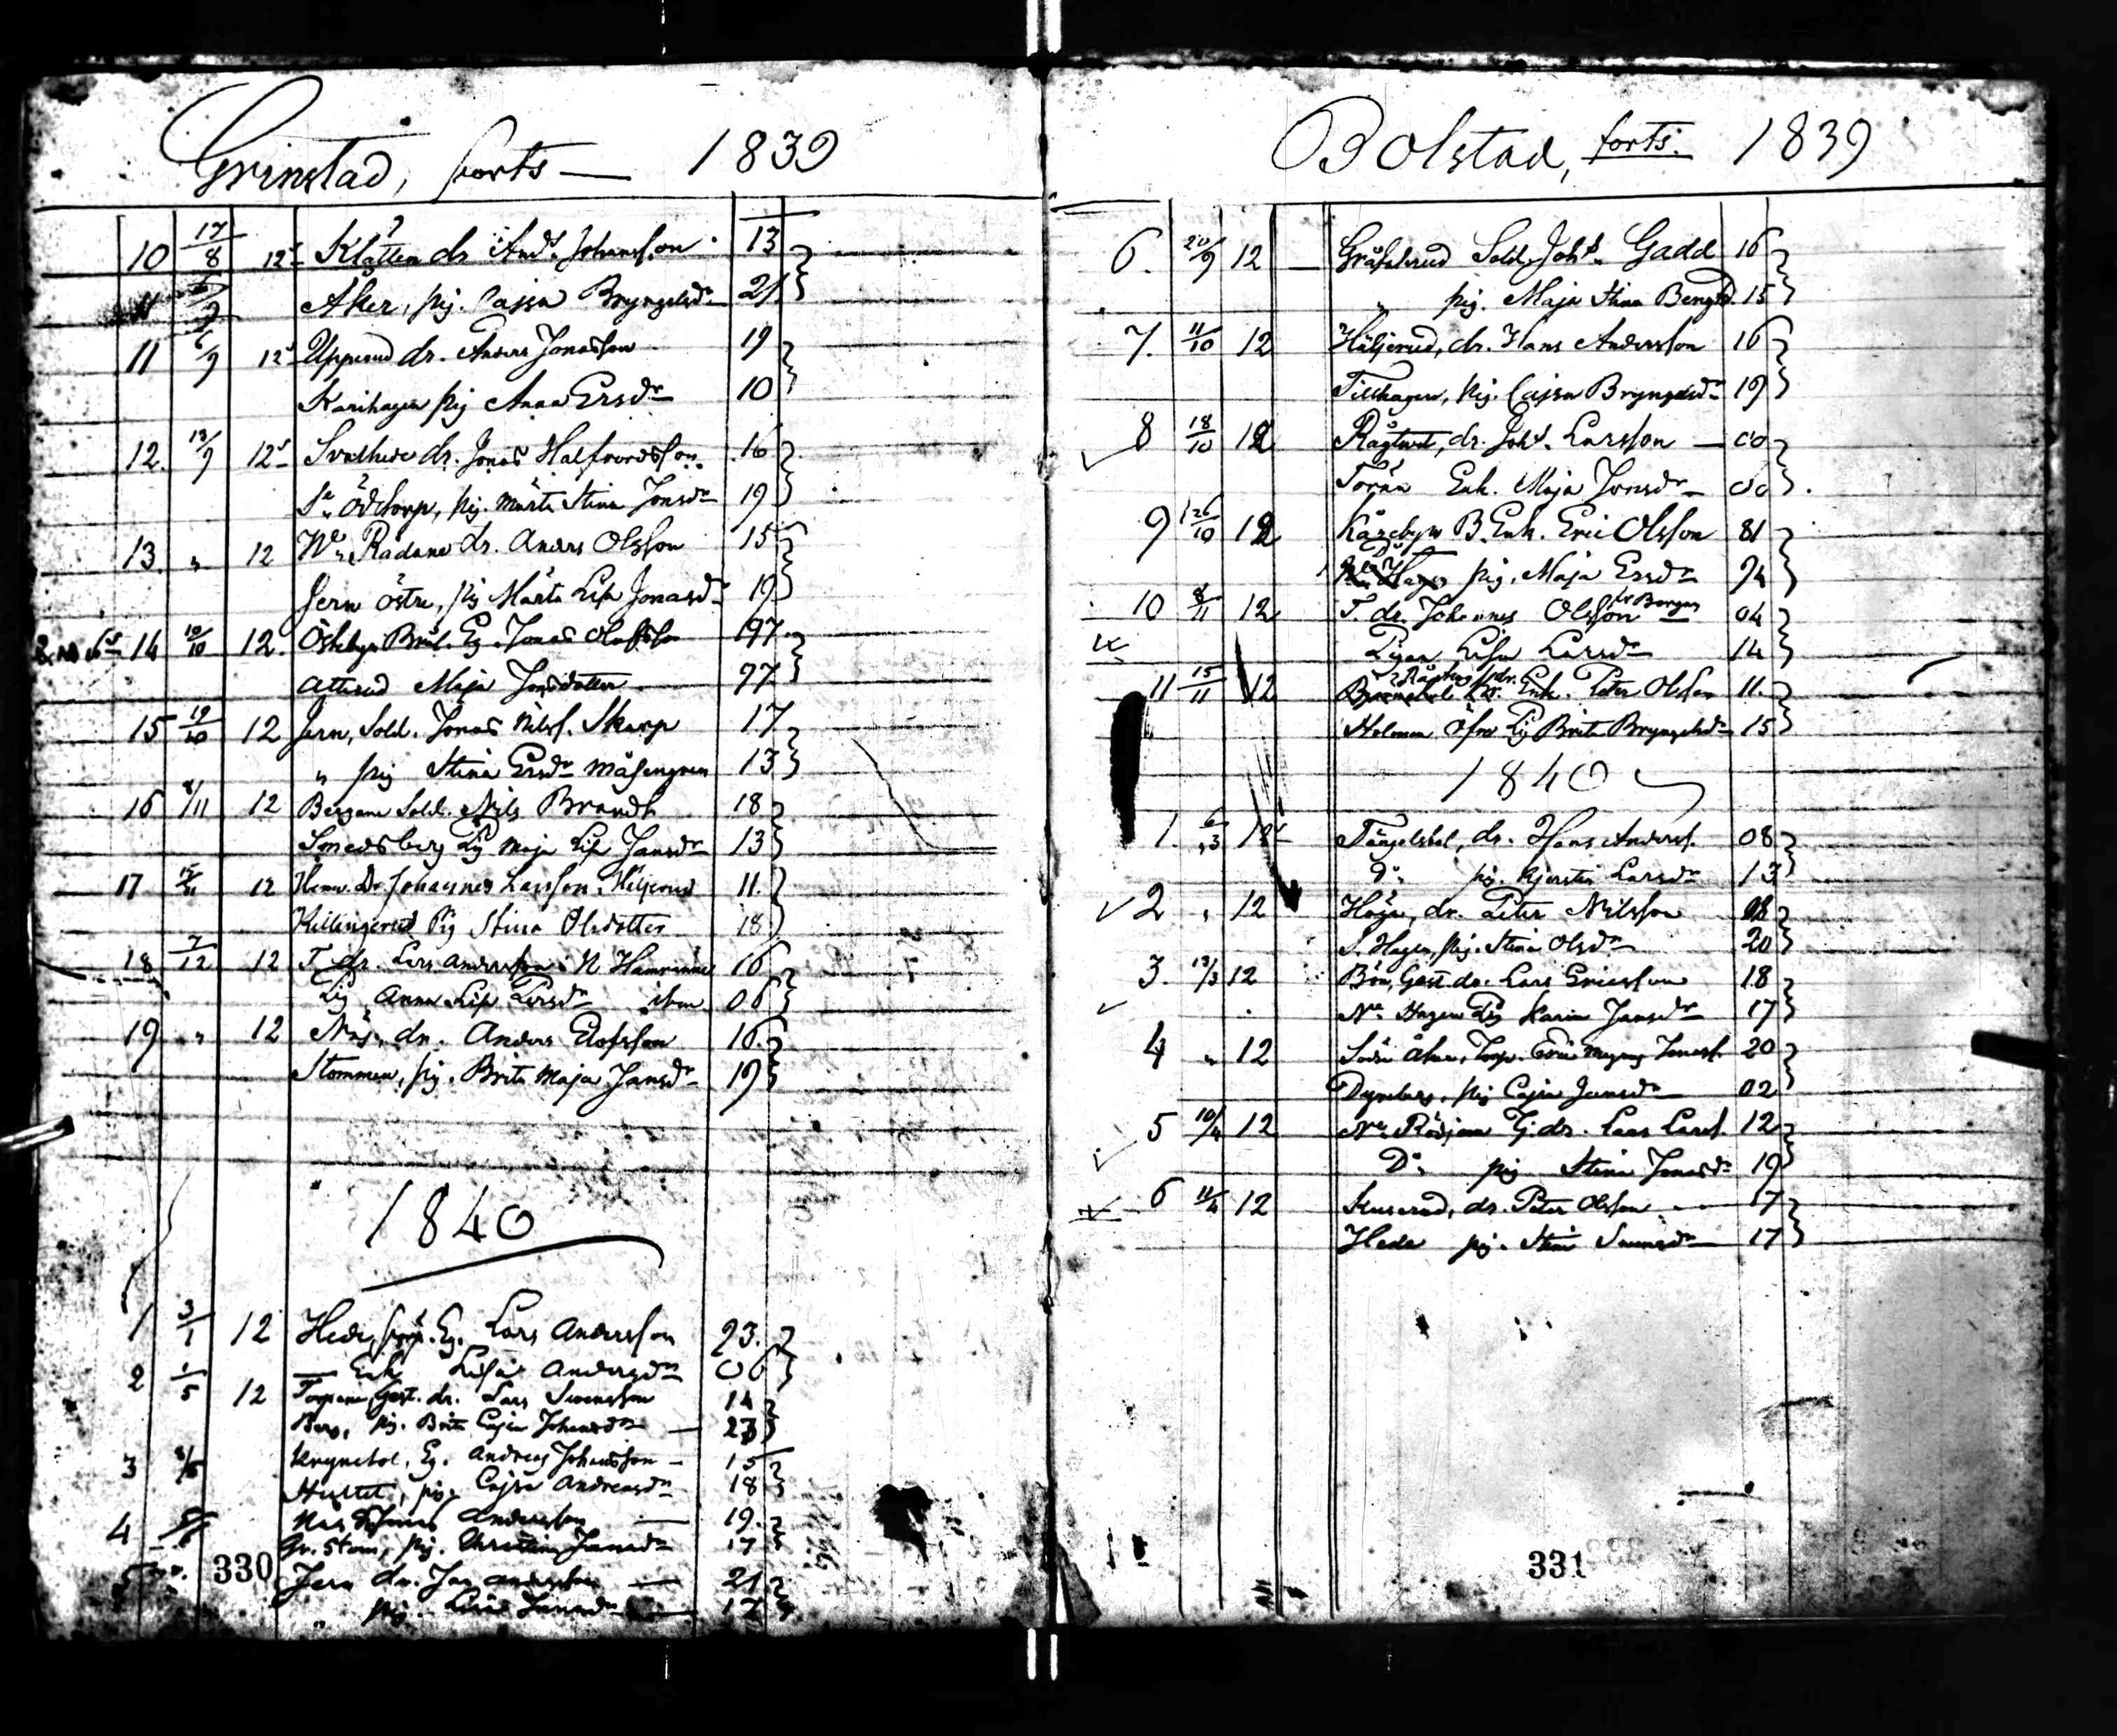 Grinstad, forts — 1839
10 17/8 12 Klåtten dr And. Johansson 13
Åker, pig. Cajsa Bryngelsdr 21
11 6/9 12 Upperud dr. Anders Jonasson 19
Karihagen pig Anna Ersdr 10
12 13/9 12 dr. Jonas Halfvordsson 16
Ödetorp, pig. Märta Stina Jonsdr 19
13 " 12 Wn Rådane dr. Anders Olsson 15
Jern östre, pig Märta Lisa Jonasdr 19
14 10/10 12. Östebyn Eg. Jonas Olofsson 97
Atterud Maja Jonsdotter 97
15 19/10 12 Jern, Sold. Jonas Nilss. Skarp 17
" pig Stina Ersdr 13
16 8/11 12 Bergane Sold. Nils Brandt 18
Smedsberg Pig Maja Lisa Jansdr 13
17 15/11 12 Dr Johannes Larsson, Heljerud 11.
Killingerud Pig Stina Olsdotter 18
18 7/12 12 T. dr. Lars Andersson N 16
Pig Anna Lisa Larsdr ibm 06
19 " 12 Näs, dr. Anders Elofsson 16.
Stommen, pig. Brita Maja Jansdr 19
1840
1 3/1 12 Hede, Eg. Lars Andersson 93.
— Enk Lisa Andersdr 06
2 1/5 12 Torpane Gast. dr. Lars Svensson 14
Berg, pig. Brita Cajsa Johansdr — 23
3 8/5 Eg. Andreas Johansson — 15
pig. Cajsa Andreasdr 18
4 Andersson — 19.
Gr. Stom, pig. Christina Jansdr 17
330 Jern dr. Jan Andersson — 21
" pig. Jansdr — 17
Bolstad, forts. 1839
6. 20/9 12 — Gråfskerud Sold. Johs. Gadd 16
" pig. Maja Stina Bengtsd. 15
7. 11/10 12 Häljerud, dr. Hans Andersson 16
Tillhagen, pig. Cajsa Bryngelsdr 19
8 18/10 12 dr. Johs. Larsson — 00
Enk. Maja Jonsdr 00
9 26/10 12 Kärebyn B. Enk. Eric Olsson 81
pig. Maja Ersdr 94
10 8/11 12 T. dr. Johannes Olsson 04
Pigan Lisa Larsdr 14
11 15/11 12 Enk. Peter Olsson 11.
Holmen öfre Pig Brita Bryngelsdr 15
1840
1. 6/3 12 Tängelsbol, dr. Hans Anderss. 08
Do pig. Kjerstin Larsdr 13
2 " 12 Höga, dr. Peter Nilsson
S. Hagen, pig. Stina Olsdr 20
3. 13/3 12 Bön, Gast. dr. Lars Ericsson 18
Nr. Hagen Pig Karin Jansdr 17
4 " 12 Södra Åker, Torp. Eric Magnus Jonass. 20
pig Cajsa Jansdr 02
5 10/4 12 Nr. Rösjane Tj. dr. Lars Larss. 12
Do pig Stina Jonasdr 19
6 11/4 12 Kuserud, dr. Peter Olsson 17
Hede pig. Stina 17
331